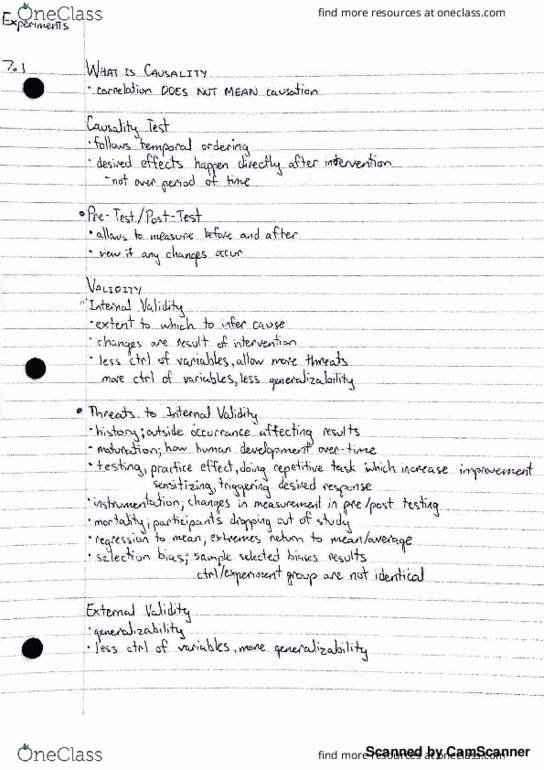 OneClass
find more resources at oneclass.com
Experiments
7.1
WHAT IS CAUSALITY
• correlation DOES NOT MEAN causation
Causality Test
• follows temporal ordering
• desired effects happen directly after intervention
- not over period of time
• Pre-Test/Post-Test
• allows to measure before and after
• view if any changes occur
VALIDITY
Internal Validity
• extent to which to infer cause
• changes are result of intervention
• less ctrl of variables, allow more threats
more ctrl of variables, less generalizability
• Threats to Internal Validity
• history; outside occurrance affecting results
• maturation; how human development over time
• testing; practice effect, doing repetitive task which increase improvement
sensitizing, triggering desired response
• instrumentation; changes in measurement in pre/post testing
• mortality; participants dropping out of study
• regression to mean; extremes return to mean/average
• selection bias; sample selected biases results
ctrl/experiment group are not identical
External Validity
• generalizability
• less ctrl of variables, more generalizability
OneClass
find more resources at oneclass.com
Scanned by CamScanner